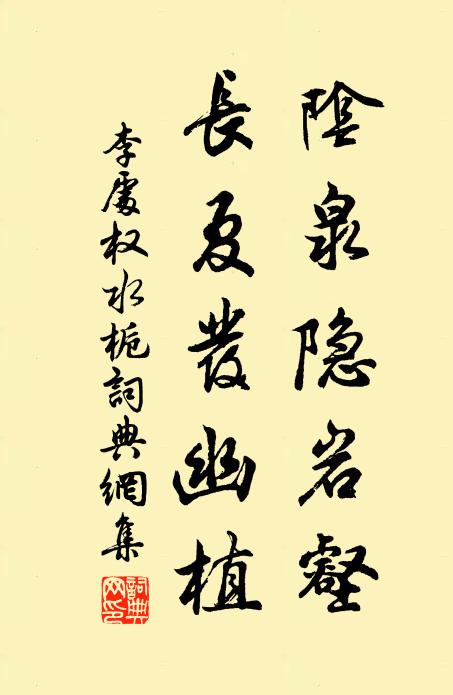 陰泉隐岩壑
長夏發幽植
李處权水栀詞典網集
詞典网印